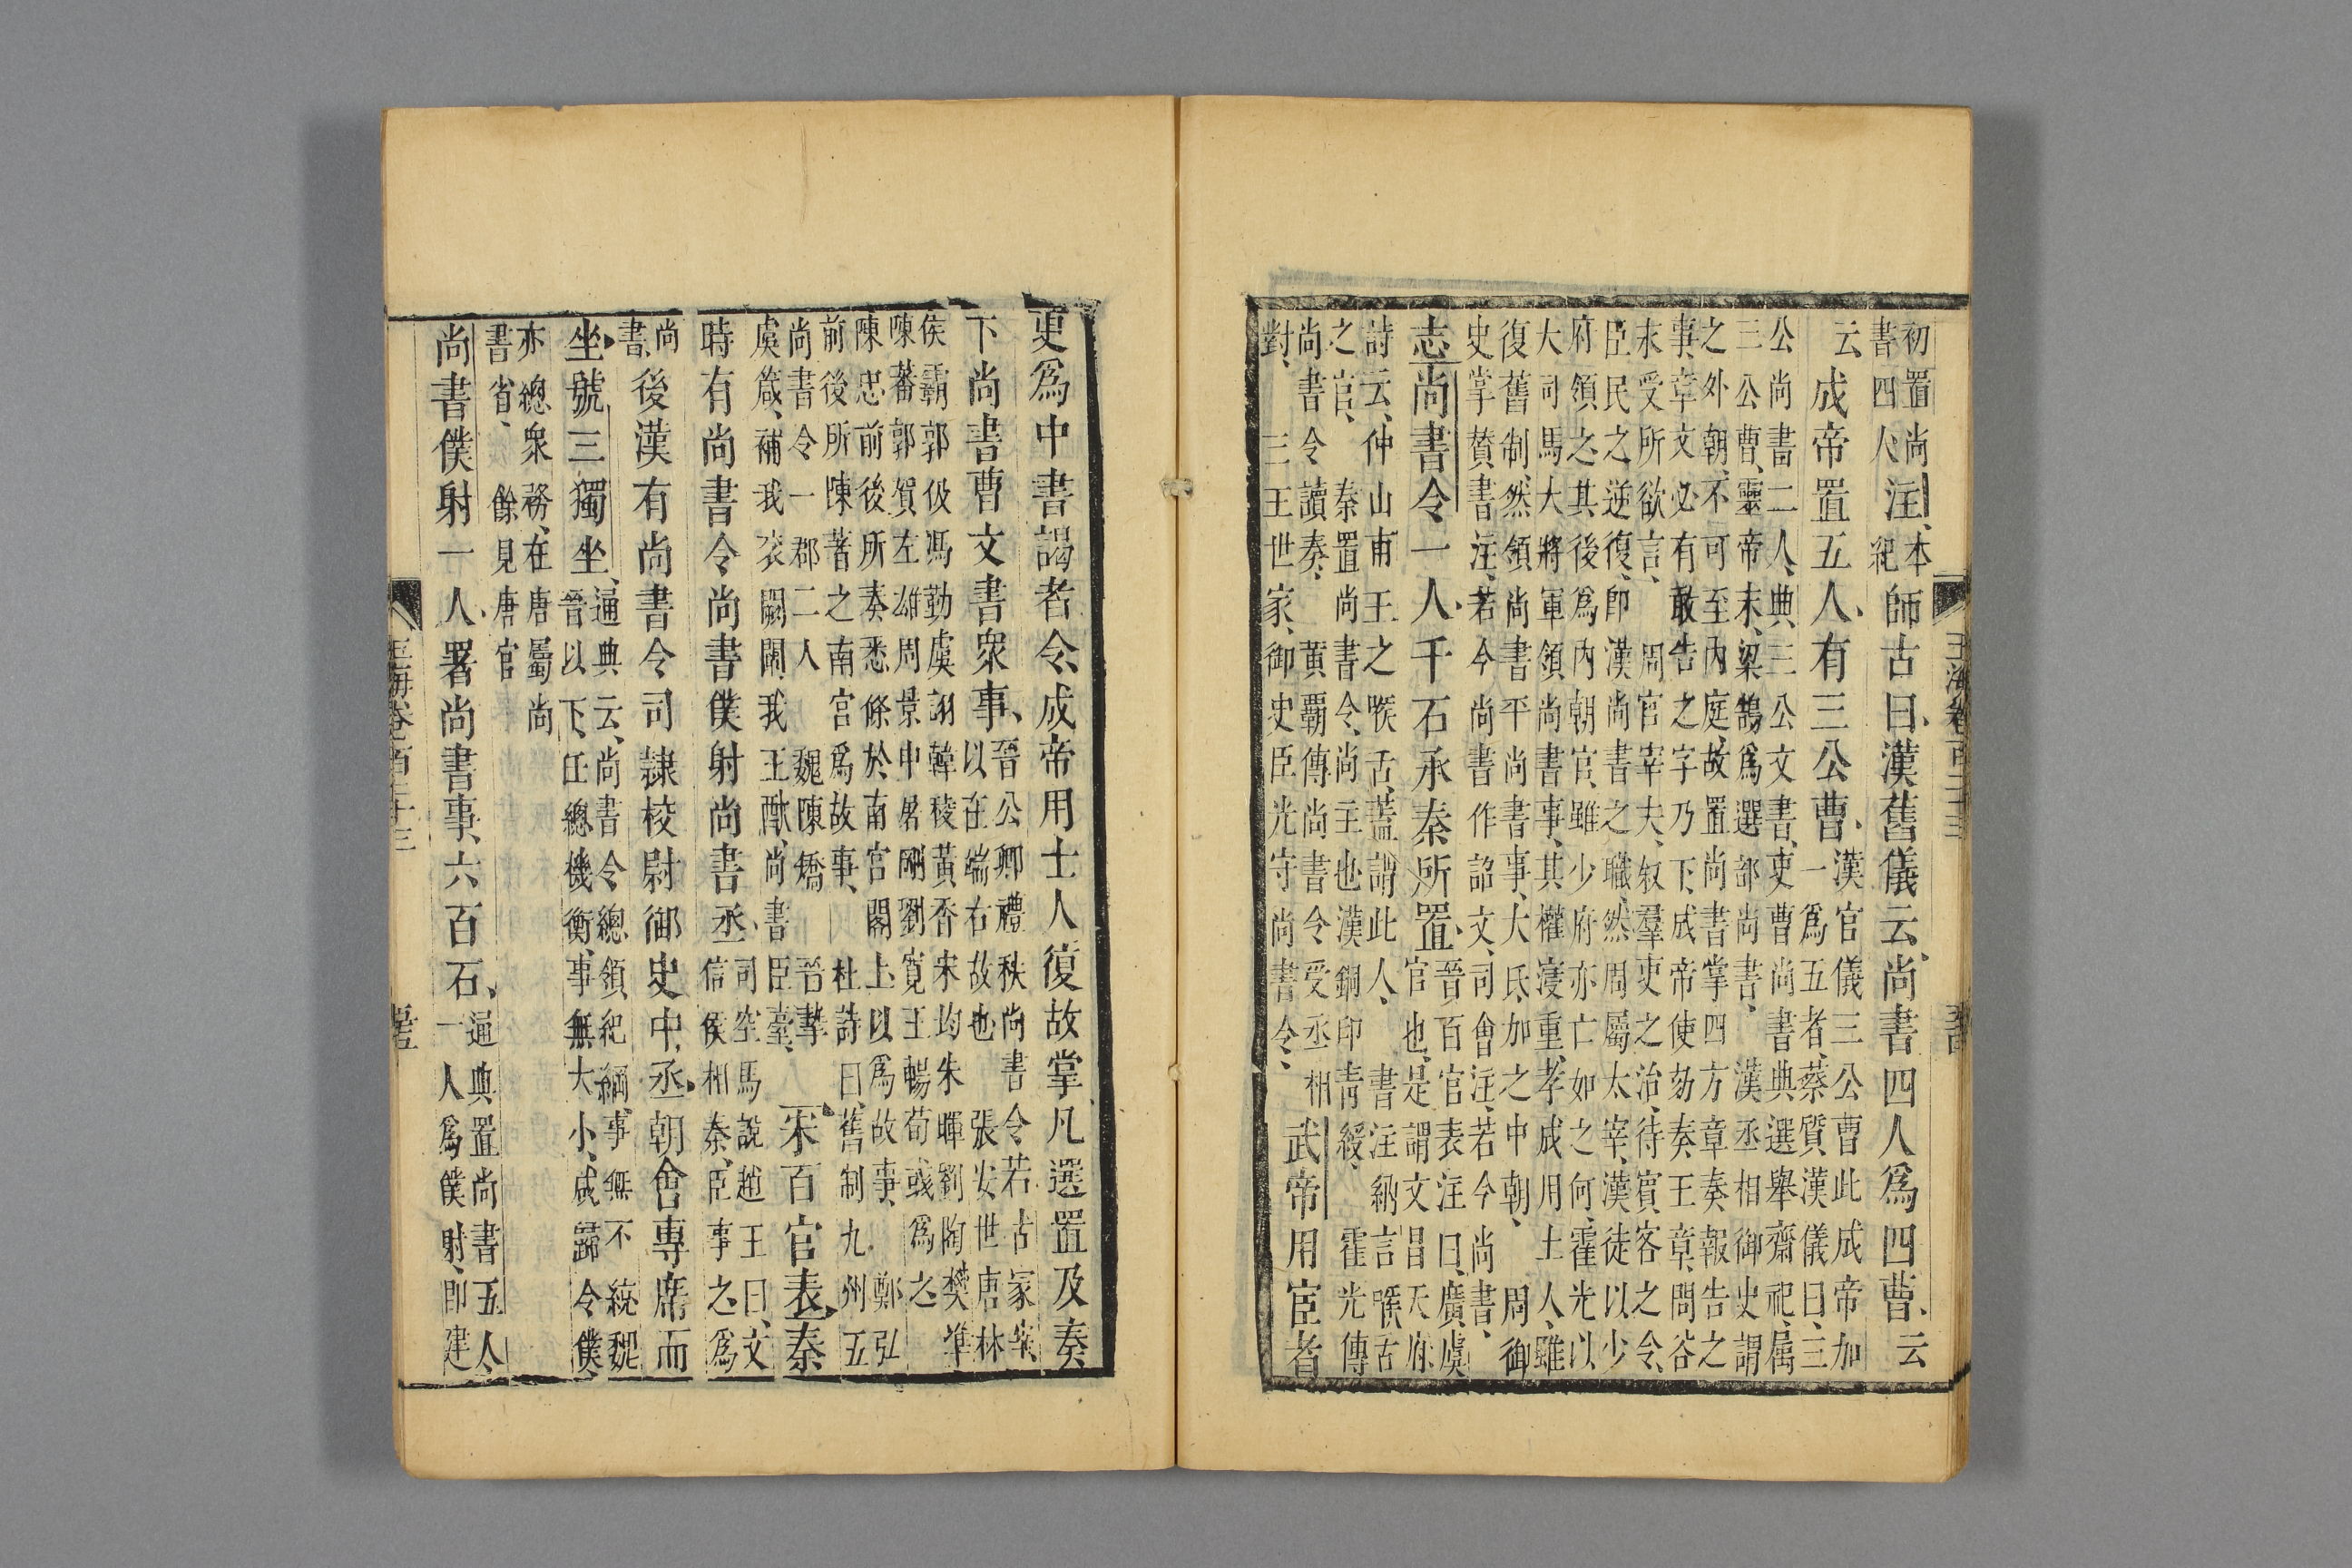 初置尚
書四人
注、
本
紀
師古曰、漢舊儀云、尚書四人爲四曹、云
云
成帝置五人、有三公曹、
漢官儀三公曹此成帝加
一爲五者、蔡質漢儀曰、三
公尚書二人、典三公文書、吏曹尚書典選舉齋祀、屬
三公曹、靈帝末、梁鵠爲選部尚書、 漢丞相御史謂
之外朝、不可至內庭、故置尚書掌四方章奏報告之
事、章文必有敢告之字乃下、成帝使劾奏王章、問谷
永受所欲言、 周官宰夫、叙羣吏之治、待賓客之令、
臣民之逆復、卽漢尚書之職、然周屬太宰、漢徒以少
府領之、其後爲內朝官、雖少府亦亡如之何、霍光以
大司馬大將軍領尚書事、其權寖重、孝成用士人、雖
復舊制、然領尚書平尚書事、大氐、加之中朝、 周御
史掌贊書注、若今尚書作詔文、司會注、若今尚書、
志尚書令一人、千石承秦所置、
晉百官表注曰、廣虞
官也、是謂文昌天府
詩云、仲山甫王之喉舌、蓋謂此人、 書注納言喉舌
之官、 秦置尚書令、尚主也漢銅印靑綬、 霍光傳
尚書令讀奏、 黃霸傳尚書令受丞相
對、 三王世家、御史臣光守尚書令、
武帝用宦者
更爲中書謁者令、成帝用士人復故掌凡選置及奏
下尚書曹文書衆事、
晉公卿禮秩尚書令若古冢宰、
以在端右故也 張安世唐林
侯霸郭伋馮勤虞詡韓稜黃香宋均朱暉劉陶樊準
陳蕃郭賀左雄周景申屠剛劉寬王暢荀彧爲之
陳忠前後所奏悉條於南宮閣上以爲故事、 鄭弘
前後所陳著之南宮爲故事、 杜詩曰、舊制九州五
尚書令一郡二人 魏陳矯 晉摯
虞箴、補我袞闕、闢我王猷、尚書臣臺、
宋百官表、秦
時有尚書令尚書僕射尚書丞、
司空馬說趙王曰、文
信侯相秦、臣事之、爲
尚
書、
後漢有尚書令司隸校尉御史中丞、朝會專席而
坐、號三獨坐、
通典云、尚書令總領紀綱、事無不統、魏
晉以下、任總機衡、事無大小、咸歸令僕、
亦總衆務、在唐屬尚
書省、 餘見唐官
尚書僕射一人、署尚書事、六百石、
通典置尚書五人、
一人爲僕射、卽建
玉海卷百二十三